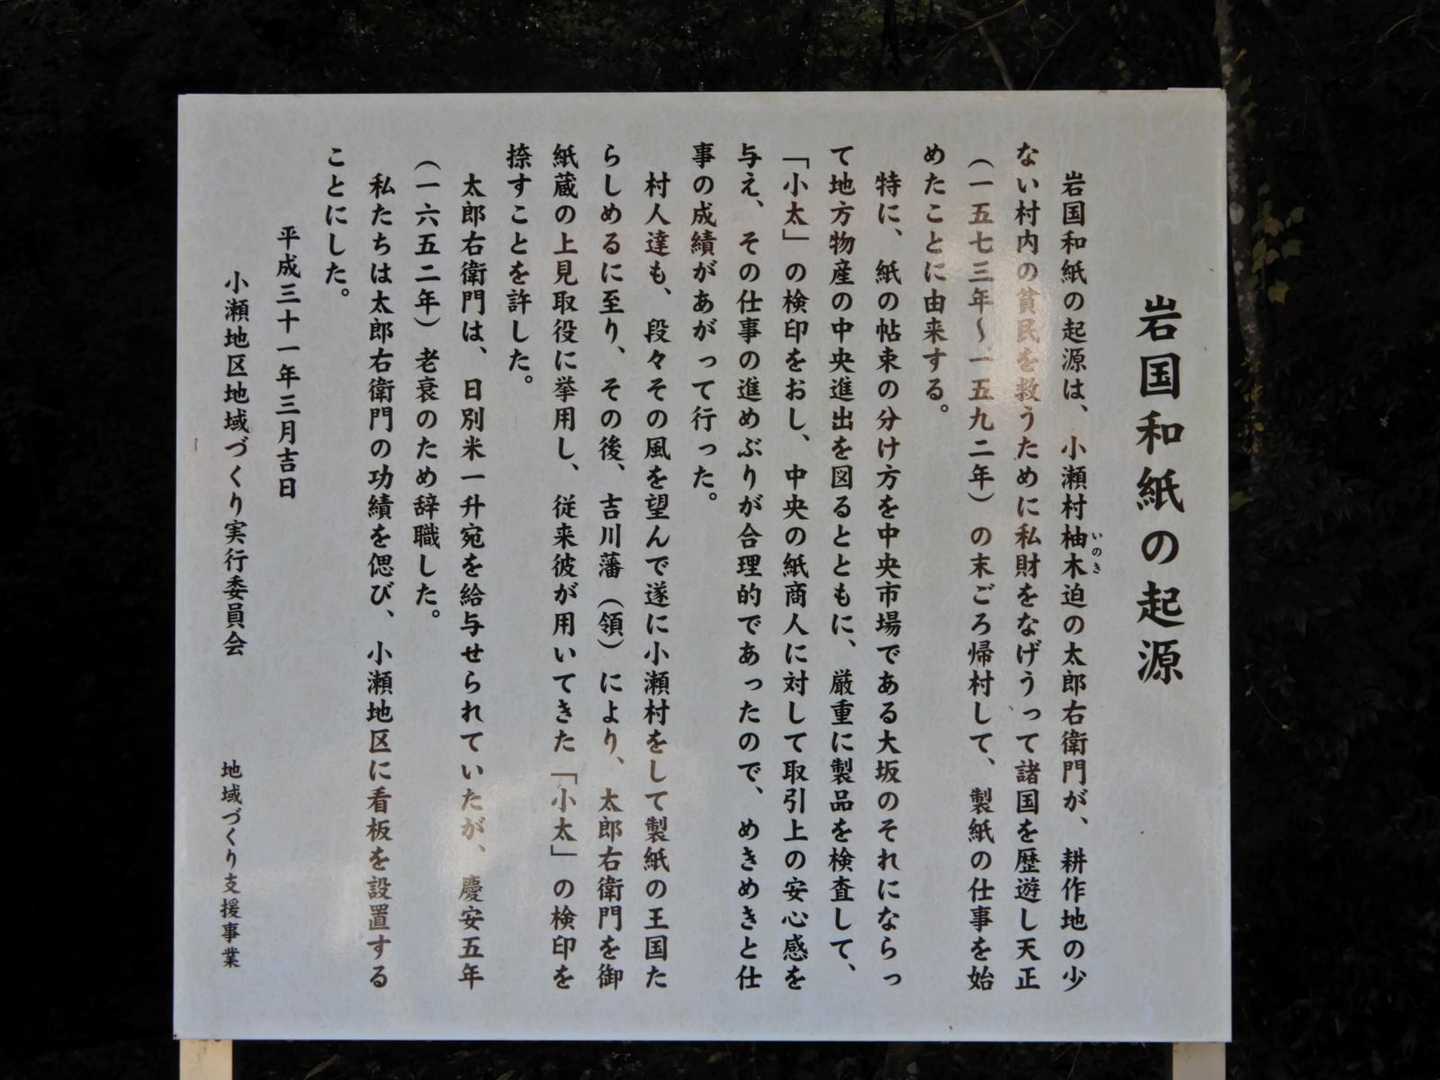 岩国和紙の起源
岩国和紙の起源は、小瀬村柚木迫の太郎右衛門が、耕作地の少
いのき
ない村内の貧民を救うために私財をなげうって諸国を歴遊し天正
（一五七三年～一五九二年）の末ごろ帰村して、製紙の仕事を始
めたことに由来する。
特に、紙の帖束の分け方を中央市場である大坂のそれにならっ
て地方物産の中央進出を図るとともに、厳重に製品を検査して、
「小太」の検印をおし、中央の紙商人に対して取引上の安心感を
与え、その仕事の進めぶりが合理的であったので、めきめきと仕
事の成績があがって行った。
村人達も、段々その風を望んで遂に小瀬村をして製紙の王国た
らしめるに至り、その後、吉川藩（領）により、太郎右衛門を御
紙蔵の上見取役に挙用し、従来彼が用いてきた「小太」の検印を
捺すことを許した。
太郎右衛門は、日別米一升宛を給与せられていたが、慶安五年
（一六五二年）老衰のため辞職した。
私たちは太郎右衛門の功績を偲び、小瀬地区に看板を設置する
ことにした。
平成三十一年三月吉日
小瀬地区地域づくり実行委員会
地域づくり支援事業